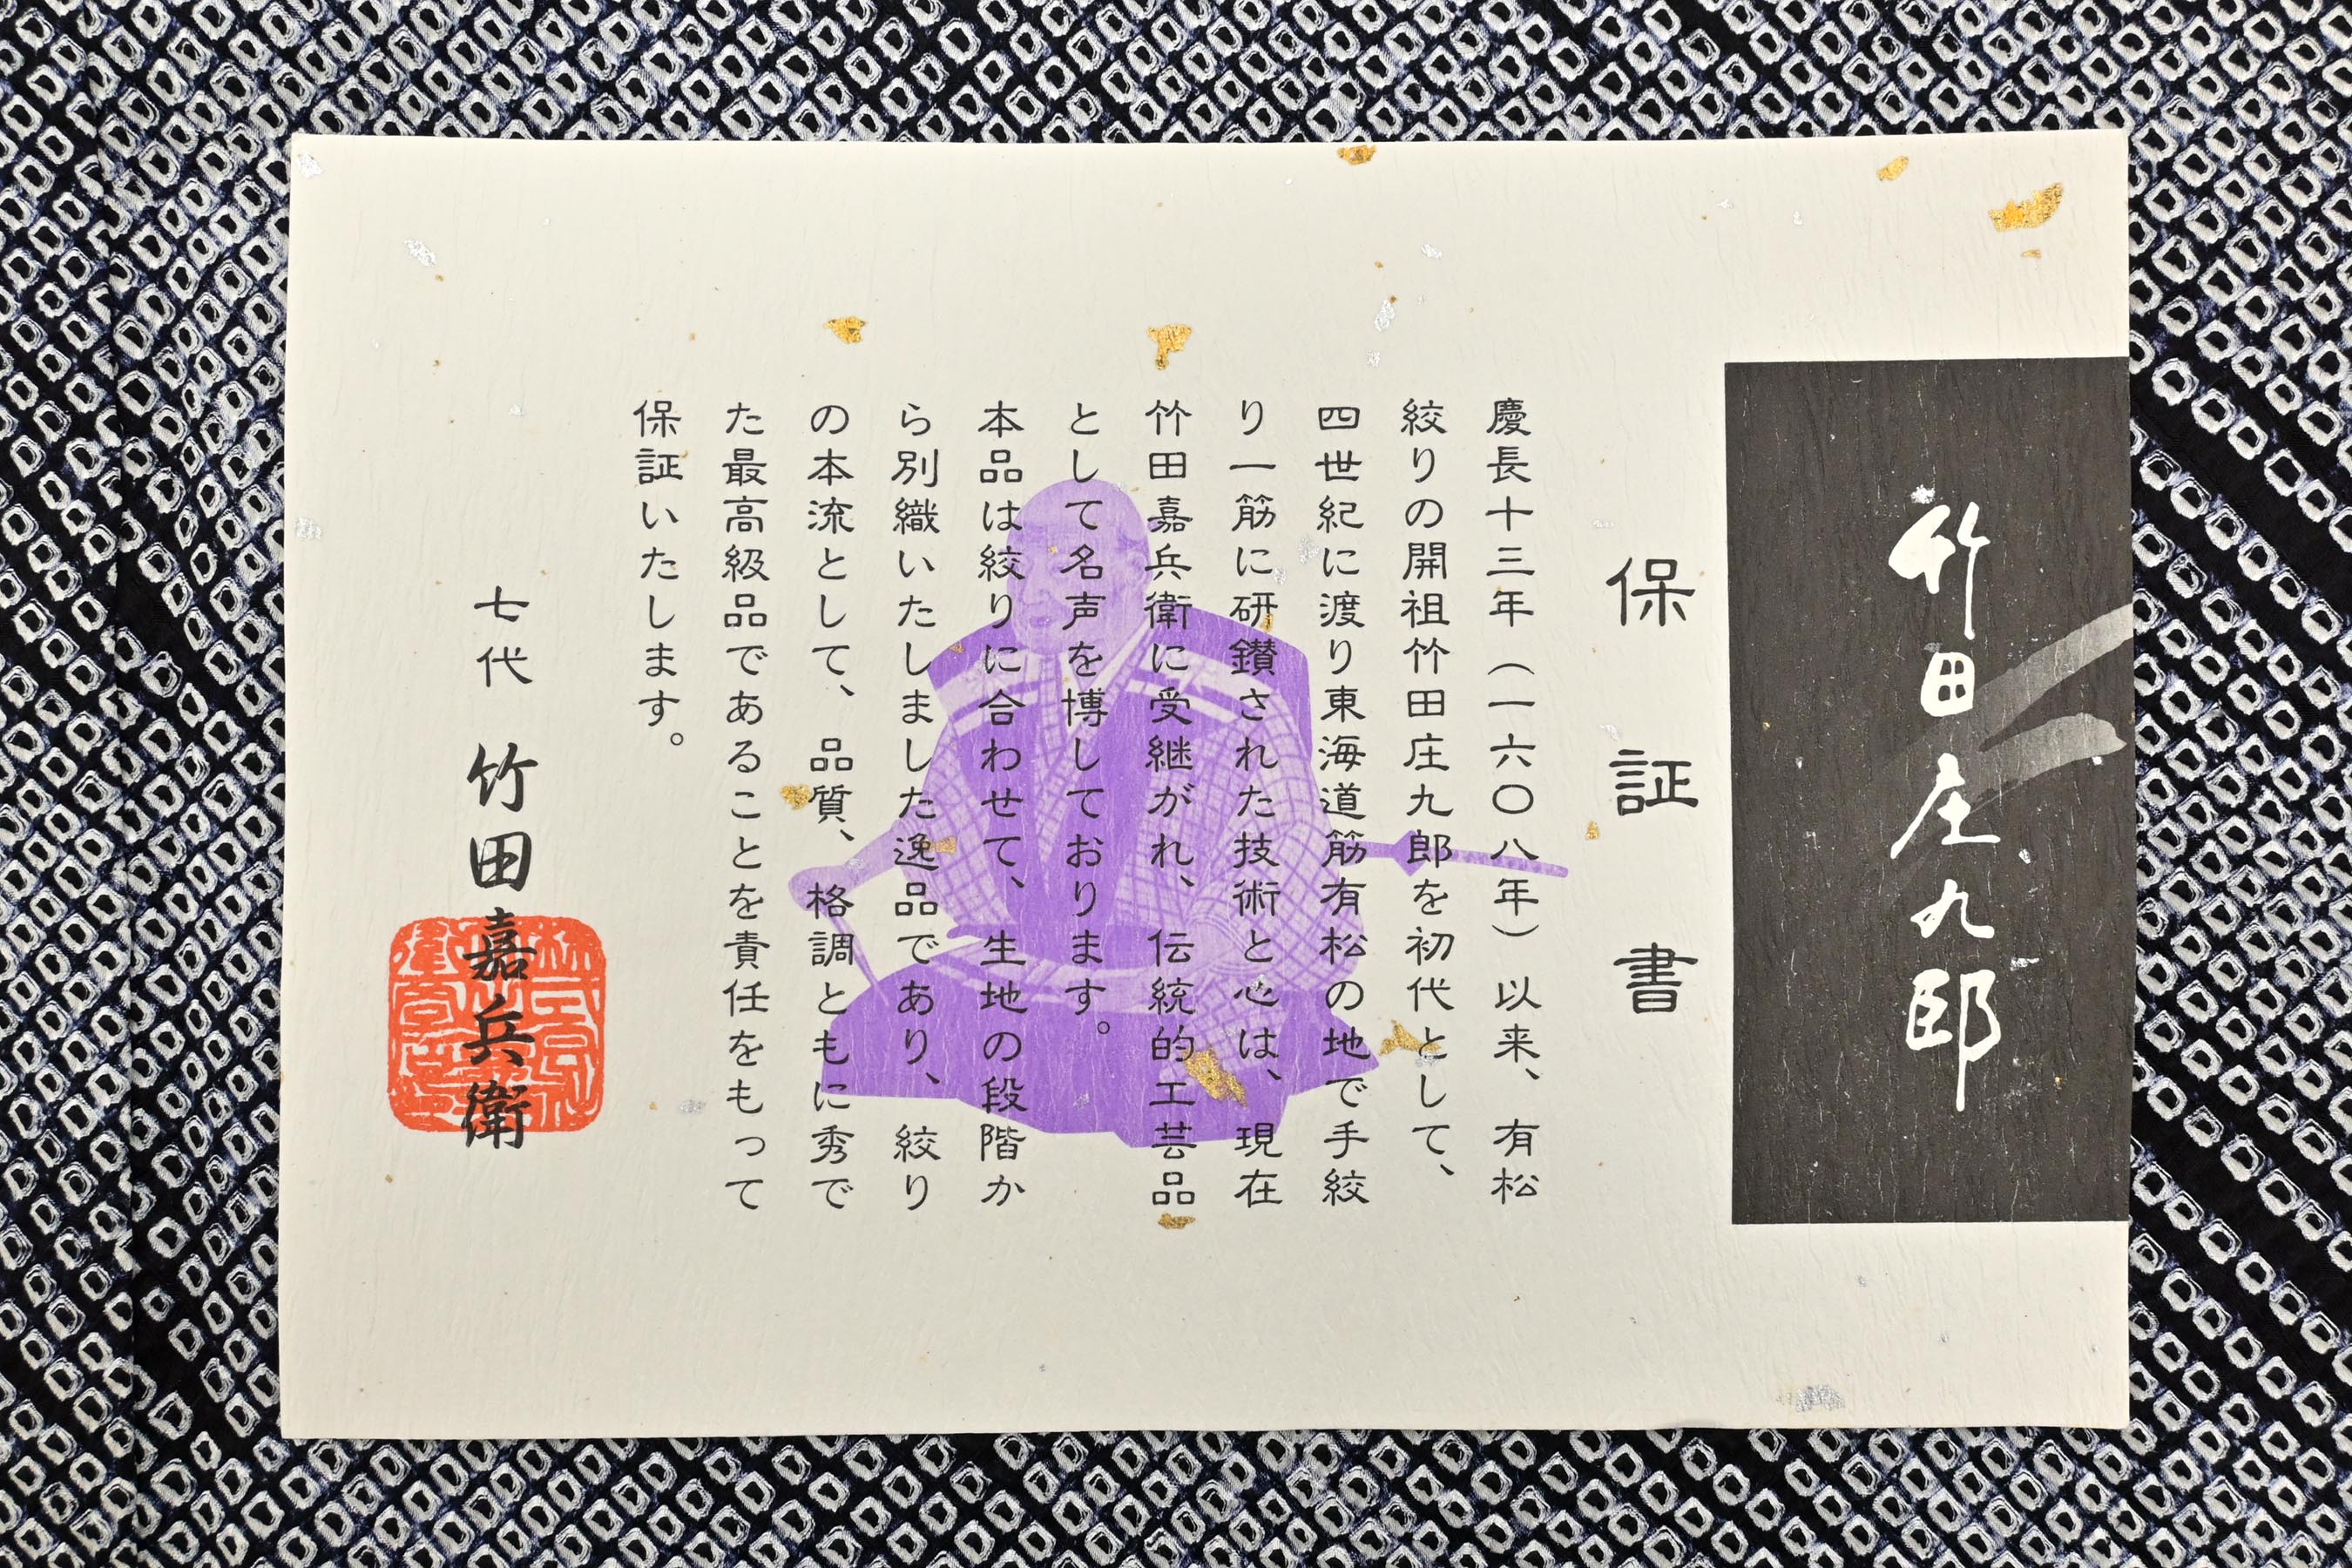 竹田庄九郎
保証書
慶長十三年（一六〇八年）以来、有松
絞りの開祖竹田庄九郎を初代として、
四世紀に渡り東海道筋有松の地で手絞
り一筋に研鑽された技術と心は、現在
竹田嘉兵衛に受継がれ、伝統的工芸品
として名声を博しております。
本品は絞りに合わせて、生地の段階か
ら別織いたしました逸品であり、絞り
の本流として、品質、格調ともに秀で
た最高級品であることを責任をもって
保証いたします。
七代 竹田嘉兵衛